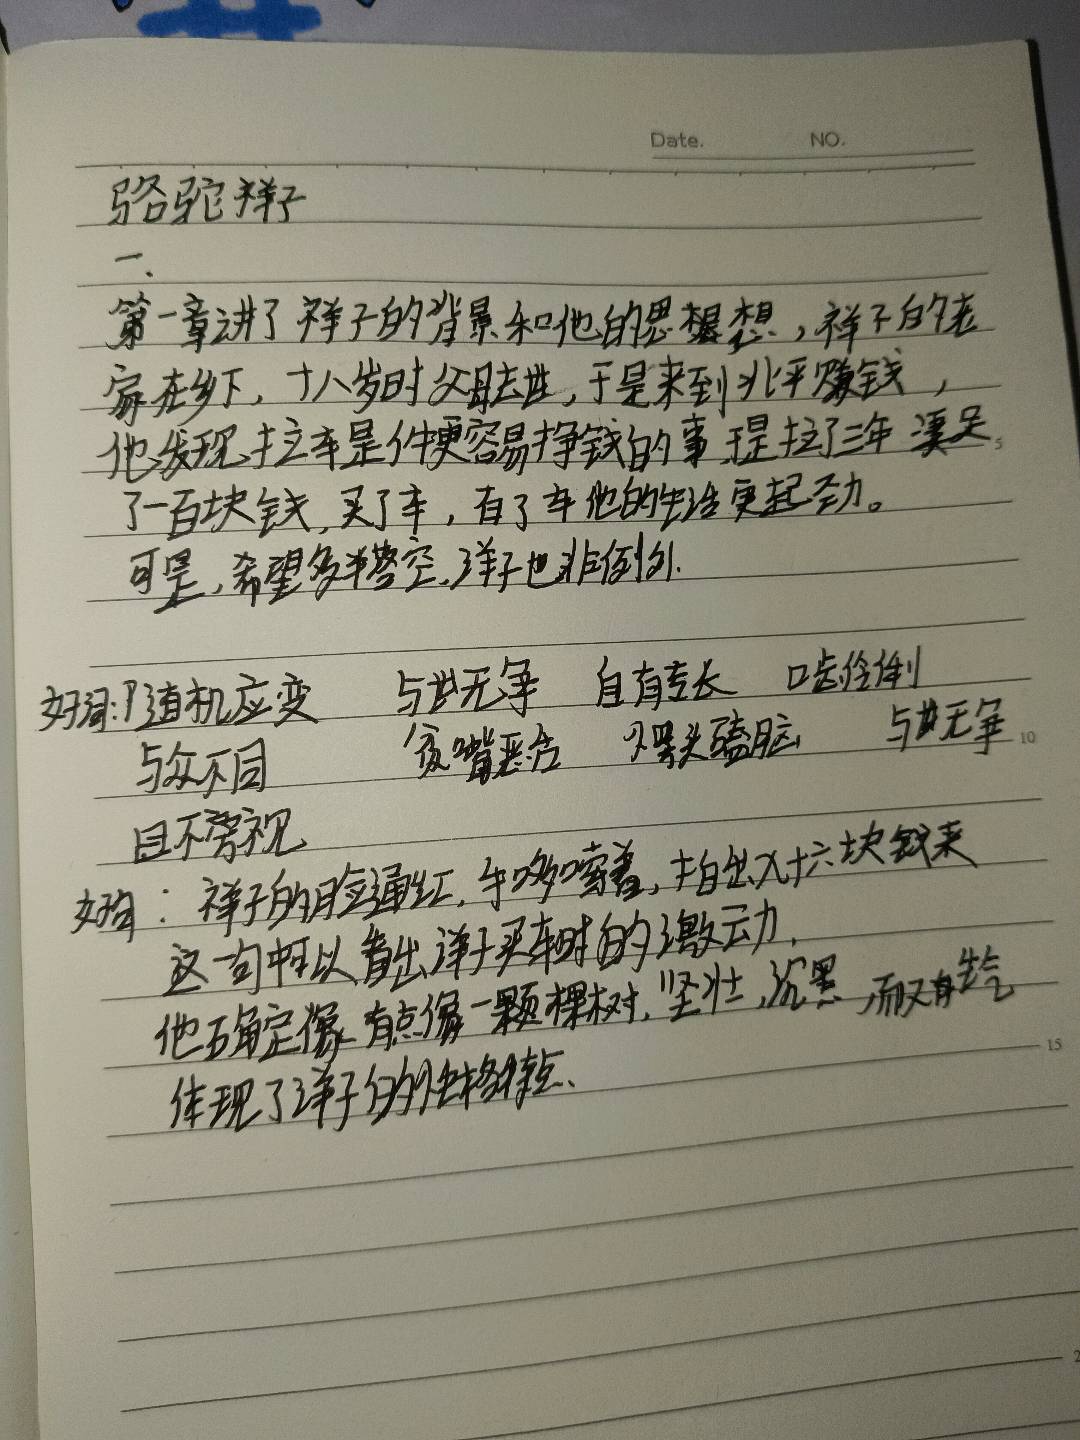 Date. NO.
骆驼祥子
一、
第一章讲了祥子的背景和他的思想想，祥子的老
家在乡下，十八岁时父母去世，于是来到北平赚钱，
他发现拉车是件更容易挣钱的事，于是拉了三年凑足 5
了一百块钱，买了车，有了车他的生活更起劲。
可是，希望多半落空，洋子也非例外.
好词：随机应变 与世无争 自有专长 口齿伶俐
与众不同 贫嘴恶舌 磕头磕脑 与世无争 10
目不旁视
好句：祥子的脸通红，手哆嗦着，拍出九十六块钱来
这一句中可以看出洋子买车时的激动，
他确定像有点像一颗棵树，坚壮，沉黑，而又有生气
15
体现了洋子的性格特点、
2